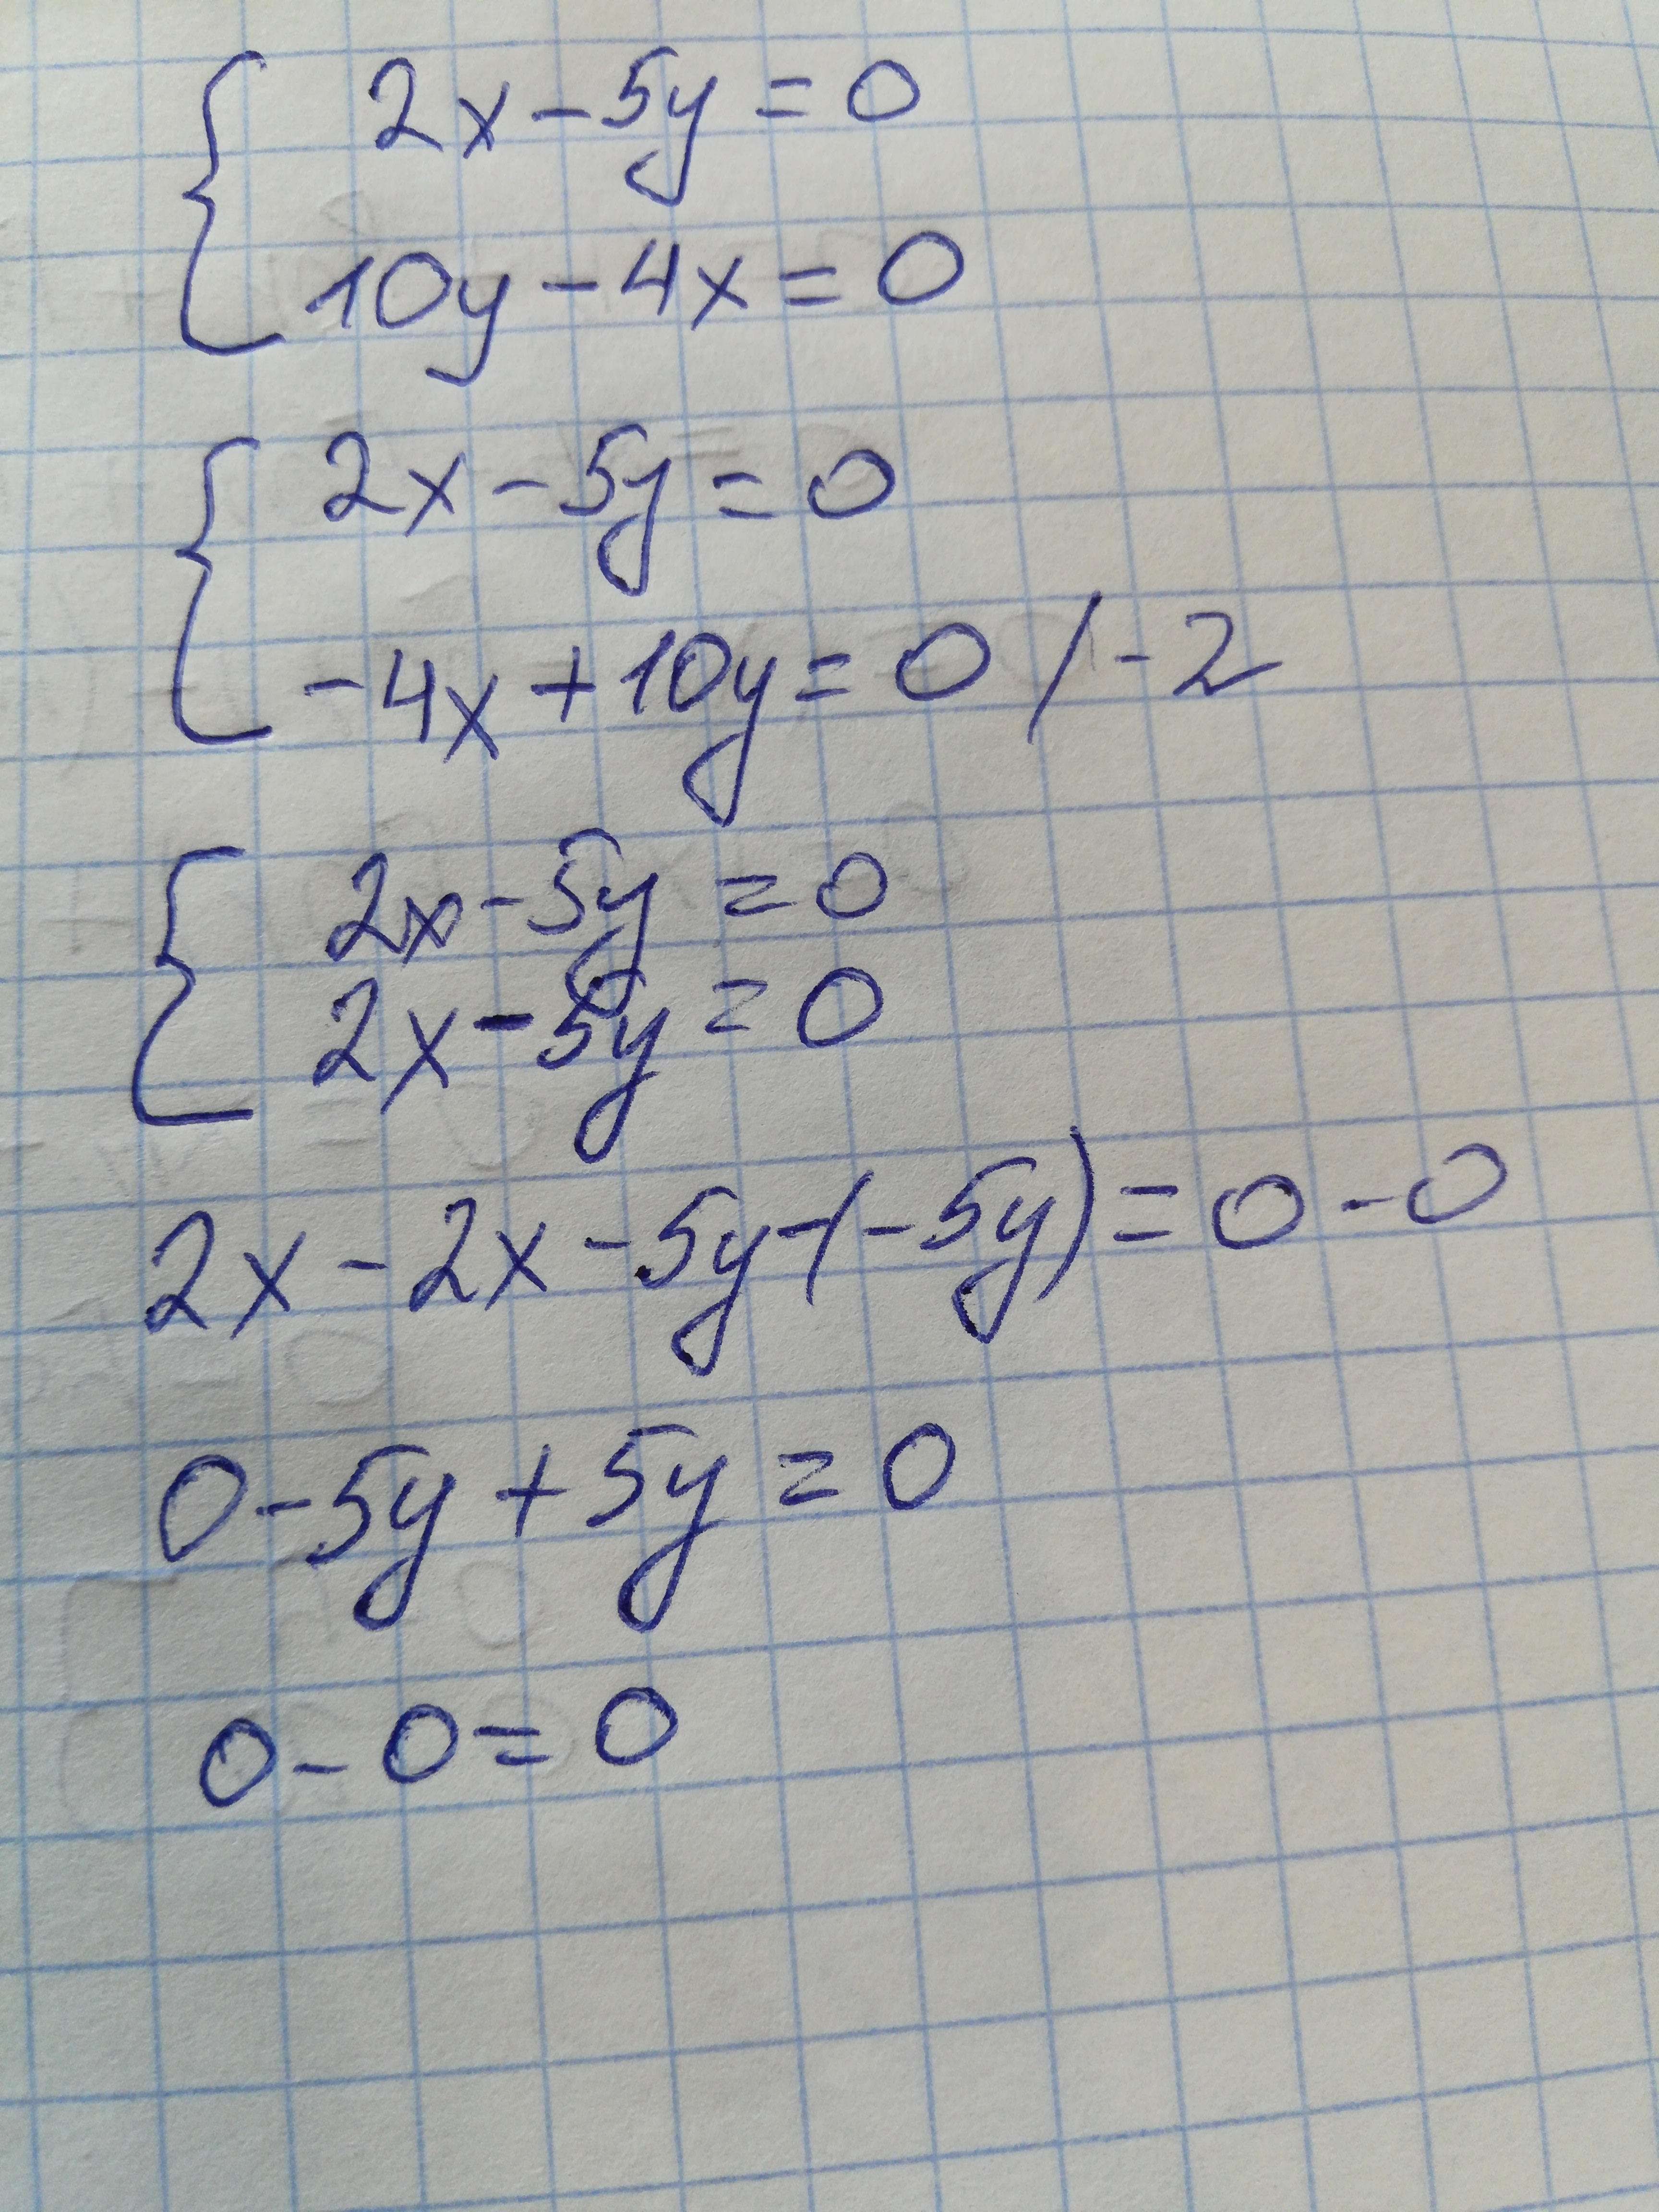 2x-5y=0
10y-4x=0
2x-5y=0
-4x+10y=0 /-2
2x-5y=0
2x-5y=0
2x-2x-5y-(-5y)=0-0
0-5y+5y=0
0-0=0